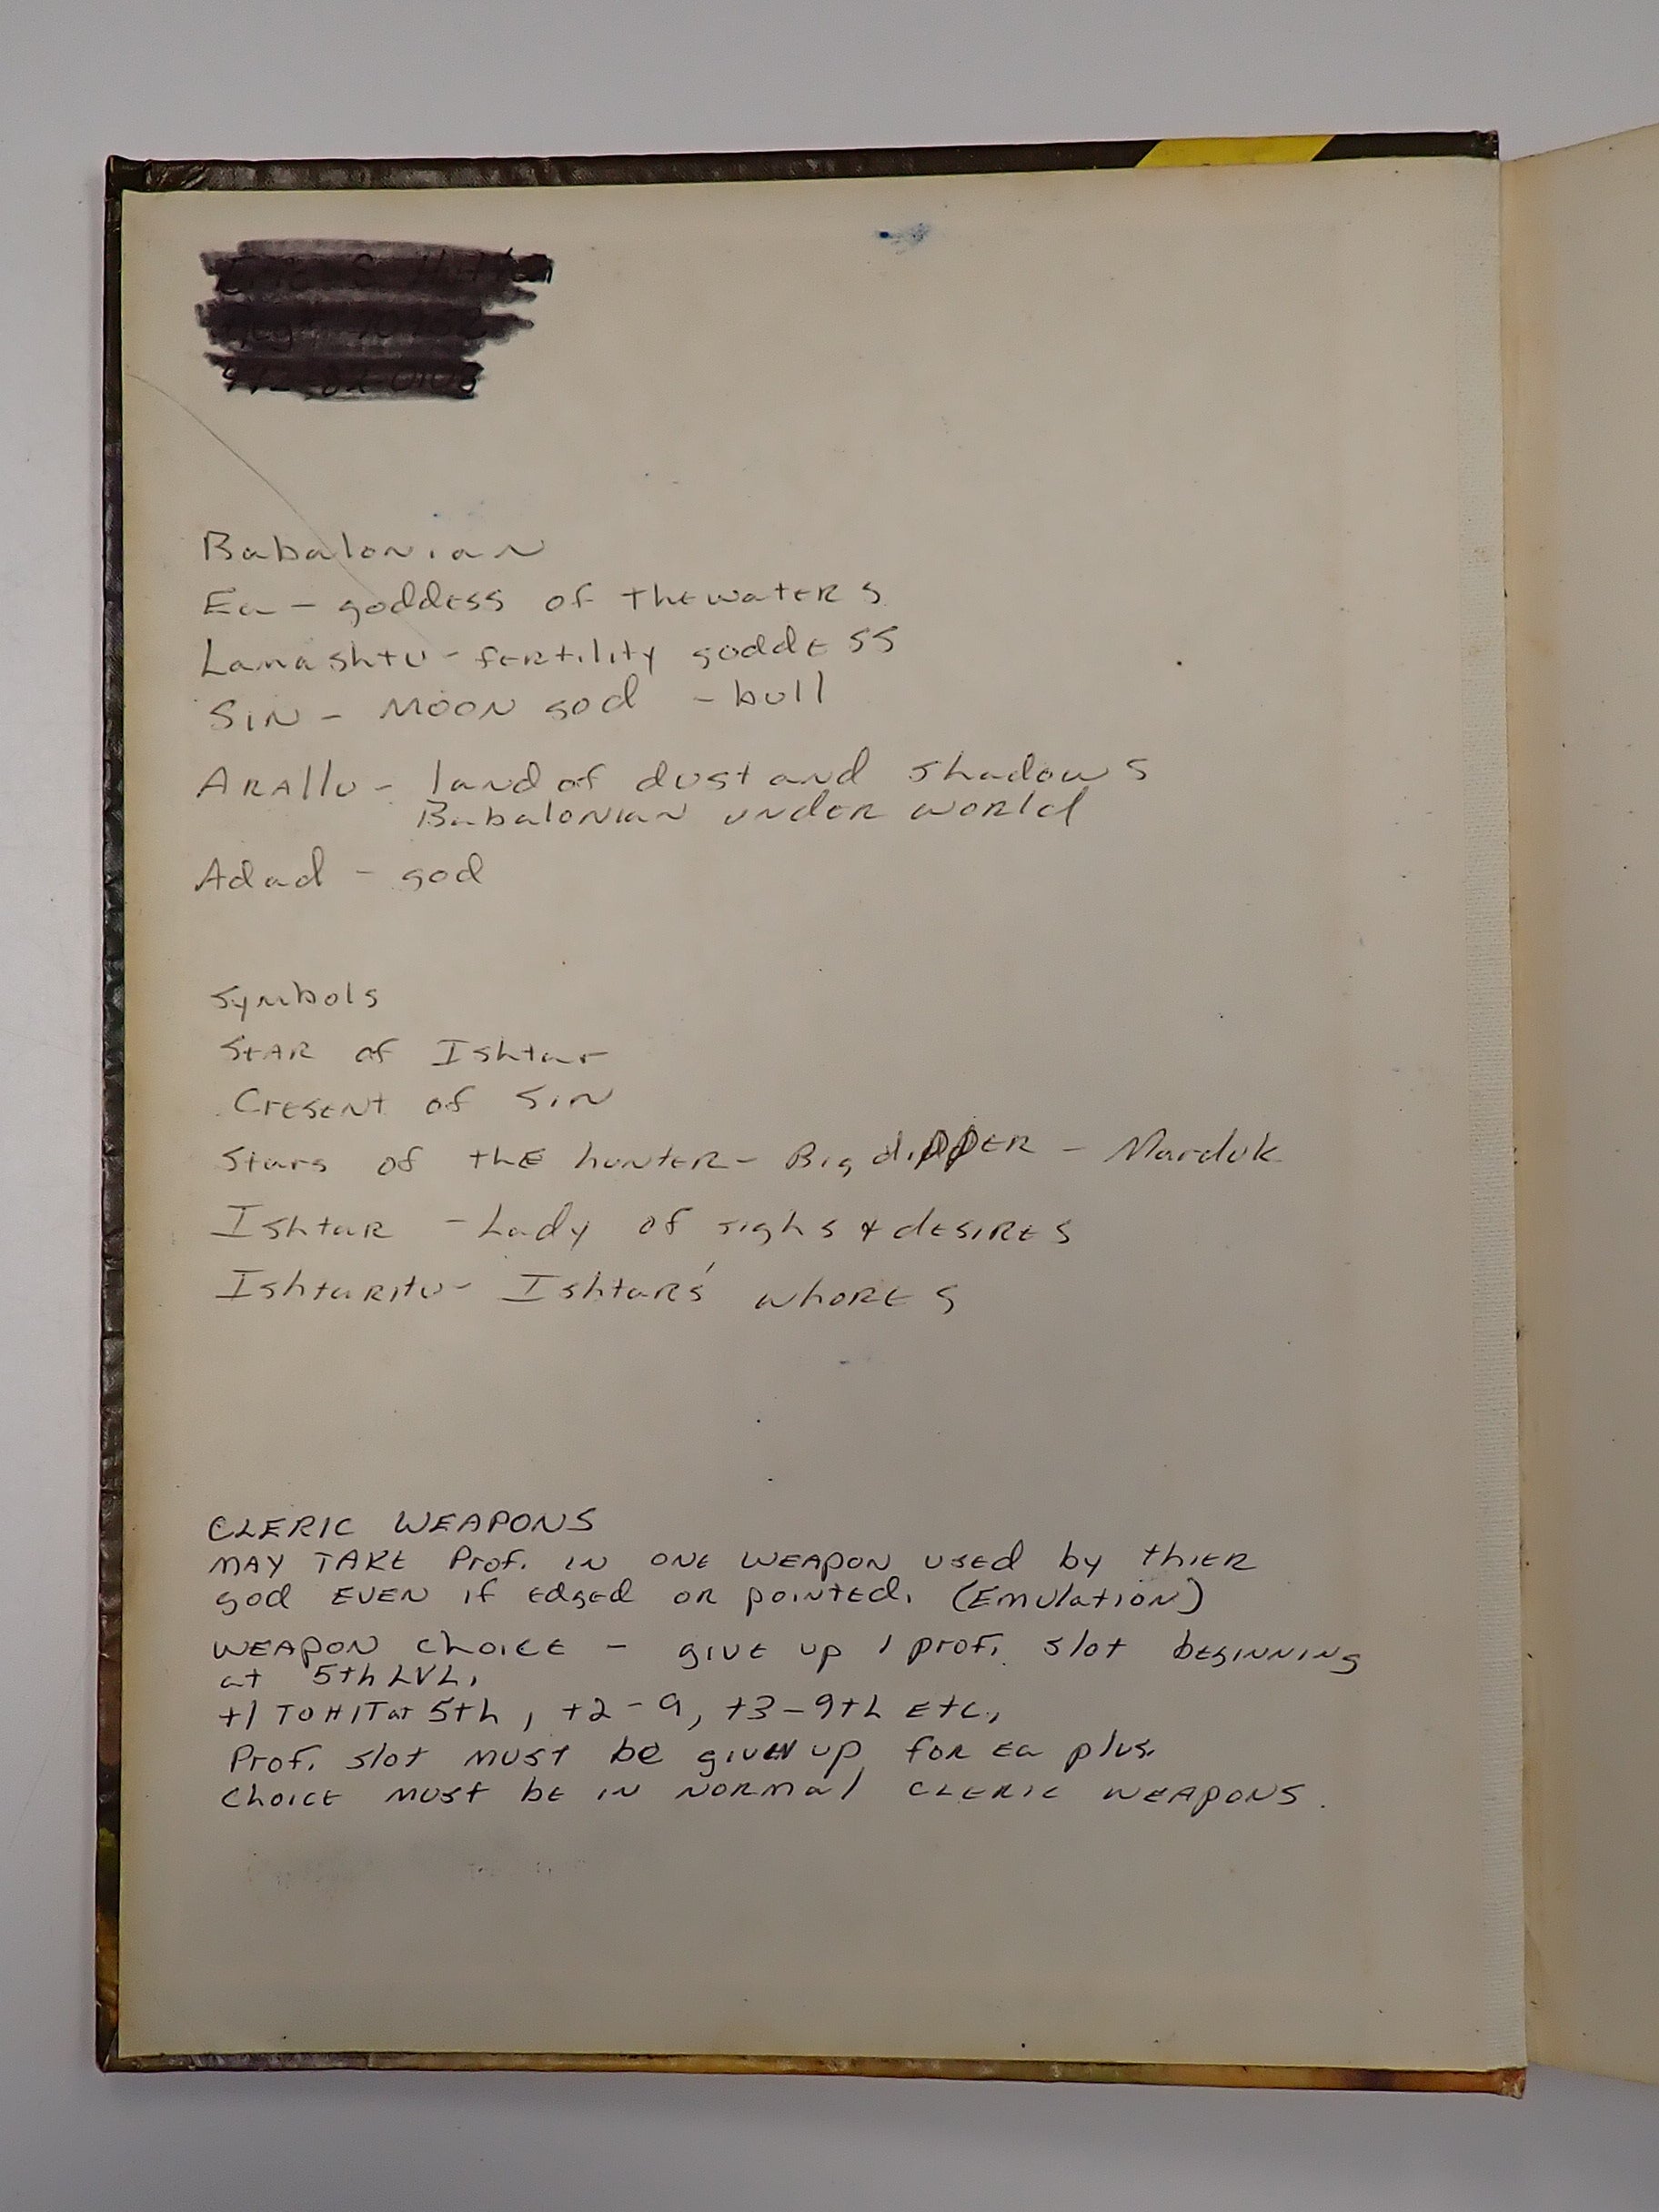 Babalonian
Ea - goddess of the waters
Lamashtu - fertility goddess
Sin - Moon god - bull
Arallu - land of dust and shadows
Babalonian under world
Adad - god
Symbols
Star of Ishtar
Cresent of Sin
Stars of the hunter - Big dipper - Marduk
Ishtar - Lady of sighs & desires
Ishtaritu - Ishtar's whores
CLERIC WEAPONS
MAY TAKE Prof. in one weapon used by thier
god even if edged or pointed. (Emulation)
Weapon choice - give up 1 prof. slot beginning
at 5th LVL,
+1 TO HIT at 5th, +2 - 9, +3 - 9th etc.,
Prof. slot must be given up for ea plus.
Choice must be in normal cleric weapons.